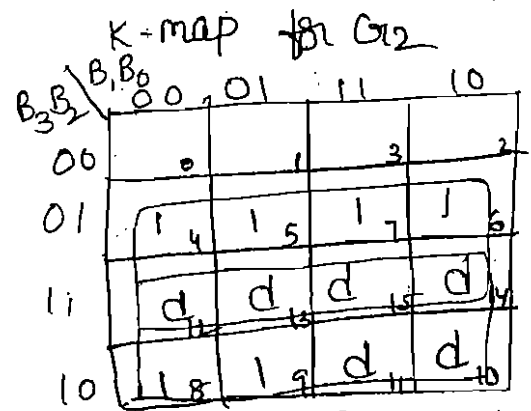 K-map for Gr2
B1B0
B3B2 00 01 11 10
00 0 1 3 2
01 1 4 1 5 1 7 1 6
11 d 12 d 13 d 15 d 14
10 1 8 1 9 d 11 d 10